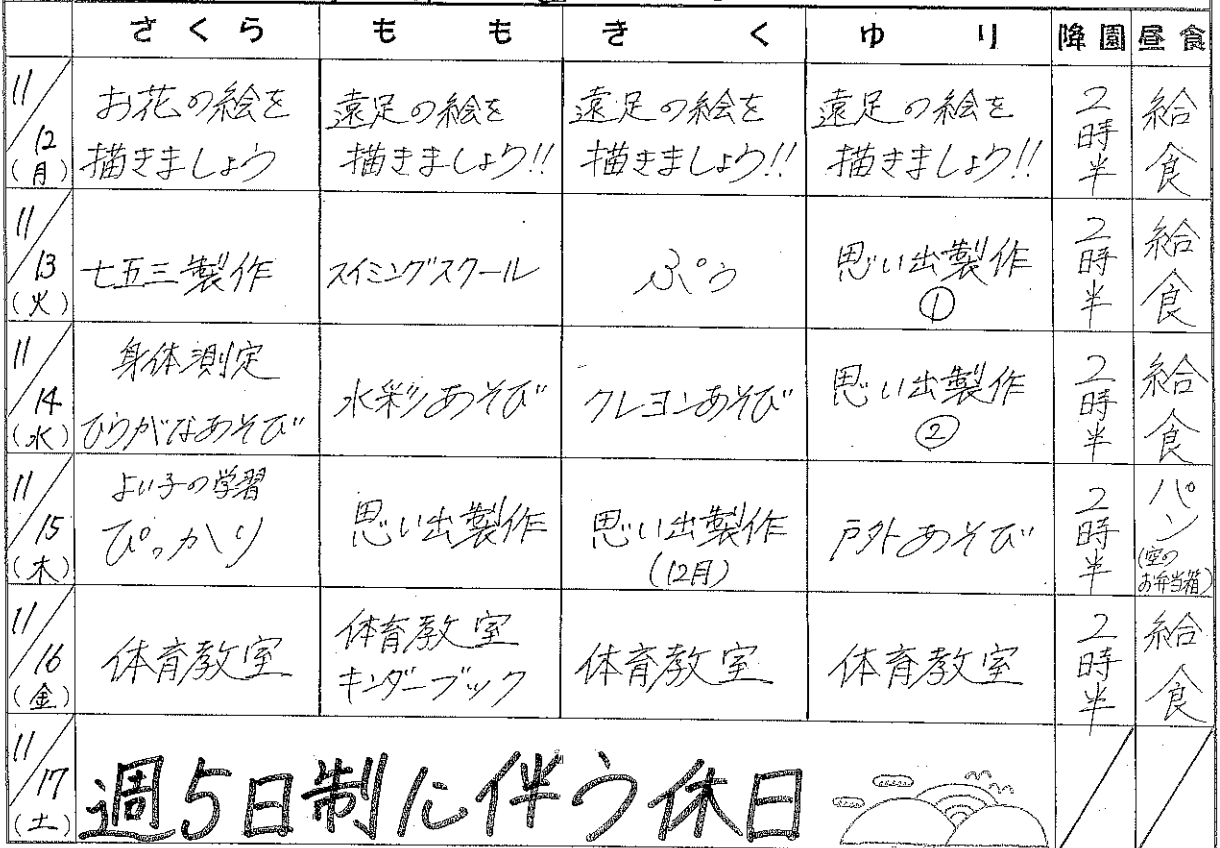 さくら もも きく ゆり 降園 昼食
11/12(月) お花の絵を描きましょう 遠足の絵を描きましょう!! 遠足の絵を描きましょう!! 遠足の絵を描きましょう!! 2時半 給食
11/13(火) 七五三製作 スイミングスクール ぷう 思い出製作① 2時半 給食
11/14(水) 身体測定 ひらがなあそび 水彩あそび クレヨンあそび 思い出製作② 2時半 給食
11/15(木) よい子の学習 ぴっかり 思い出製作 思い出製作(12月) 戸外あそび 2時半 パン(空のお弁当箱)
11/16(金) 体育教室 体育教室 キンダーブック 体育教室 体育教室 2時半 給食
11/17(土) 週5日制に伴う休日